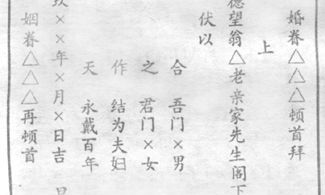 婚眷△△△顿首拜
上
德望翁△老亲家先生阁下
伏以
合 吾门×男
之 君门×女
作 结为夫妇
天 永戴百年
××年×月×日吉
姻眷△△△再顿首